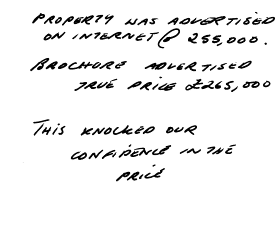 PROPERTY WAS ADVERTISED
ON INTERNET @ 255,000.
BROCHURE ADVERTISED
TRUE PRICE £265,000
THIS KNOCKED OUR
CONFIDENCE IN THE
PRICE